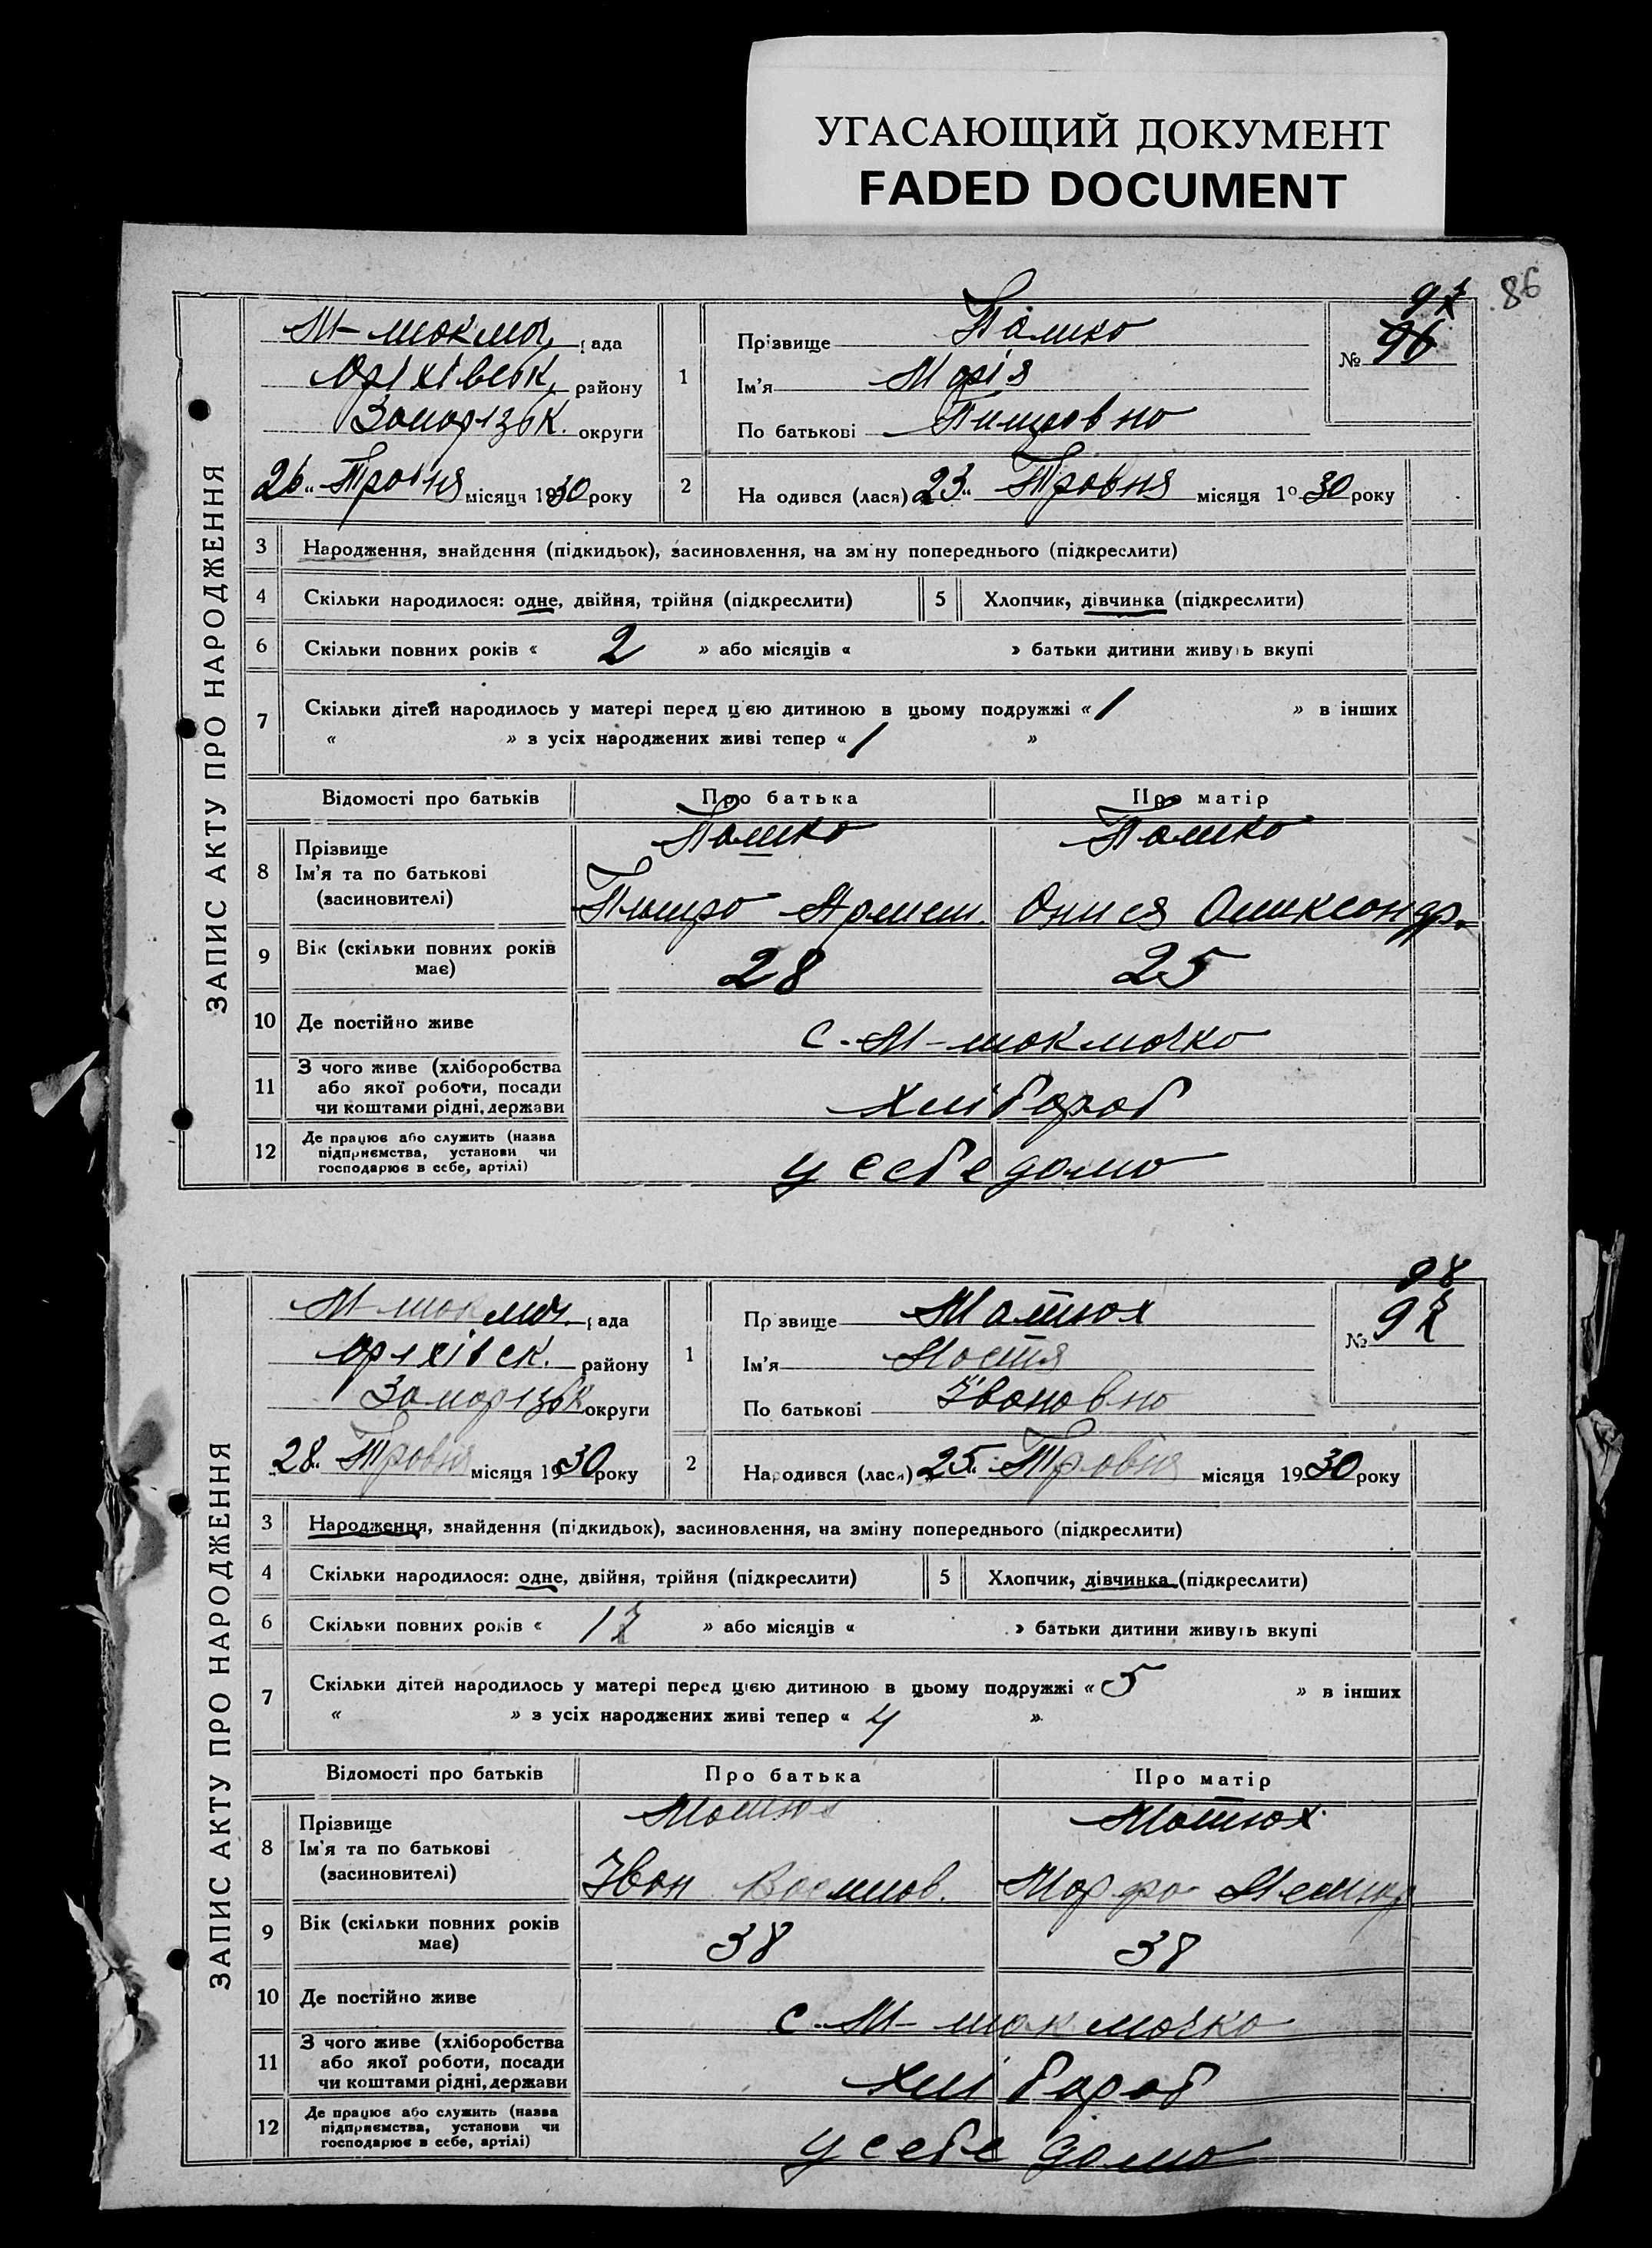 УГАСАЮЩИЙ ДОКУМЕНТ
FADED DOCUMENT
86
ЗАПИС АКТУ ПРО НАРОДЖЕННЯ
М-токмач. рада
Оріхівськ. району
Запорізьк. округи
26 Травня місяця 1930 року
1
Прізвище Пашко
Ім'я Марія
По батькові Питровна
97
№ 96
2
На одився (лася) 23 Травня місяця 1930 року
3 Народження, знайдення (підкидьок), засиновлення, на зміну попереднього (підкреслити)
4 Скільки народилося: одне, двійня, трійня (підкреслити)
5 Хлопчик, дівчинка (підкреслити)
6 Скільки повних років « 2 » або місяців « » батьки дитини живуть вкупі
7 Скільки дітей народилось у матері перед цією дитиною в цьому подружжі « 1 » в інших
« » з усіх народжених живі тепер « 1 »
Відомості про батьків Про батька Про матір
8 Прізвище
Ім'я та по батькові
(засиновителі)
Пашко
Пашко
Питро
Онися Олександр.
9 Вік (скільки повних років має) 28 25
10 Де постійно живе с. М-токмачка
11 З чого живе (хліборобства
або якої роботи, посади
чи коштами рідні, держави
хлібороб
12 Де працює або служить (назва
підприємства, установи чи
господарює в себе, артілі)
у себе дома
ЗАПИС АКТУ ПРО НАРОДЖЕННЯ
М-токмач. рада
Оріхівск. району
Запорізьк округи
28 Травня місяця 1930 року
1
Прізвище Матюх
Ім'я Настя
По батькові Івановна
98
№ 97
2
Народився (лася) 25 Травня місяця 1930 року
3 Народження, знайдення (підкидьок), засиновлення, на зміну попереднього (підкреслити)
4 Скільки народилося: одне, двійня, трійня (підкреслити)
5 Хлопчик, дівчинка (підкреслити)
6 Скільки повних років « 17 » або місяців « » батьки дитини живуть вкупі
7 Скільки дітей народилось у матері перед цією дитиною в цьому подружжі « 5 » в інших
« » з усіх народжених живі тепер « 4 »
Відомості про батьків Про батька Про матір
8 Прізвище
Ім'я та по батькові
(засиновителі)
Матюх
Матюх
Іван
Марфа
9 Вік (скільки повних років має) 38 38
10 Де постійно живе с. М-токмачка
11 З чого живе (хліборобства
або якої роботи, посади
чи коштами рідні, держави
хлібороб
12 Де працює або служить (назва
підприємства, установи чи
господарює в себе, артілі)
у себе дома